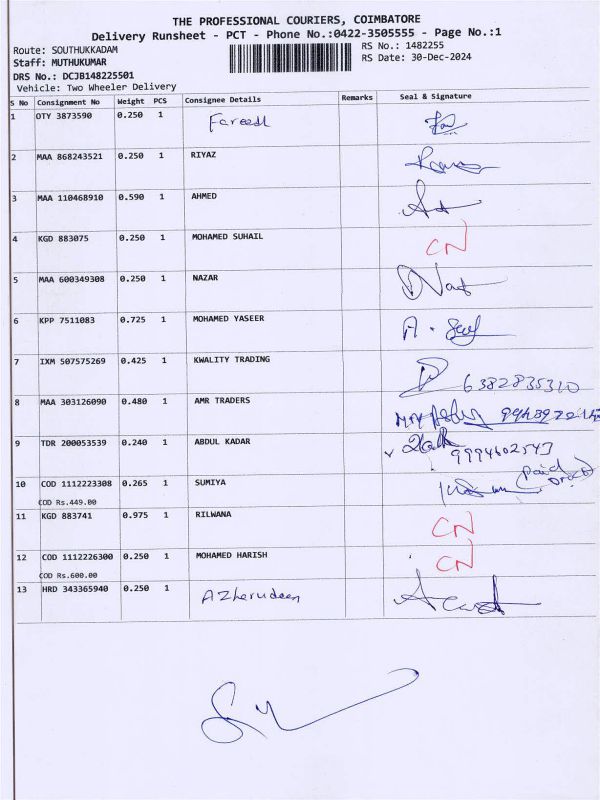 THE PROFESSIONAL COURIERS, COIMBATORE
Delivery Runsheet - PCT - Phone No.:0422-3505555 - Page No.:1
Route: SOUTHUKKADAM RS No.: 1482255
Staff: MUTHUKUMAR RS Date: 30-Dec-2024
DRS No.: DCJB148225501
Vehicle: Two Wheeler Delivery
S No Consignment No Weight PCS Consignee Details Remarks Seal & Signature
1 OTY 3873590 0.250 1 Fareed
2 MAA 868243521 0.250 1 RIYAZ
3 MAA 110468910 0.590 1 AHMED
4 KGD 883075 0.250 1 MOHAMED SUHAIL CN
5 MAA 600349308 0.250 1 NAZAR
6 KPP 7511083 0.725 1 MOHAMED YASEER
7 IXM 507575269 0.425 1 KWALITY TRADING 6382835310
8 MAA 303126090 0.480 1 AMR TRADERS
9 TDR 200053539 0.240 1 ABDUL KADAR 9994602543
10 COD 1112223308 0.265 1 SUMIYA paid
COD Rs.449.00
11 KGD 883741 0.975 1 RILWANA CN
12 COD 1112226300 0.250 1 MOHAMED HARISH CN
COD Rs.600.00
13 HRD 343365940 0.250 1 AZherudeen